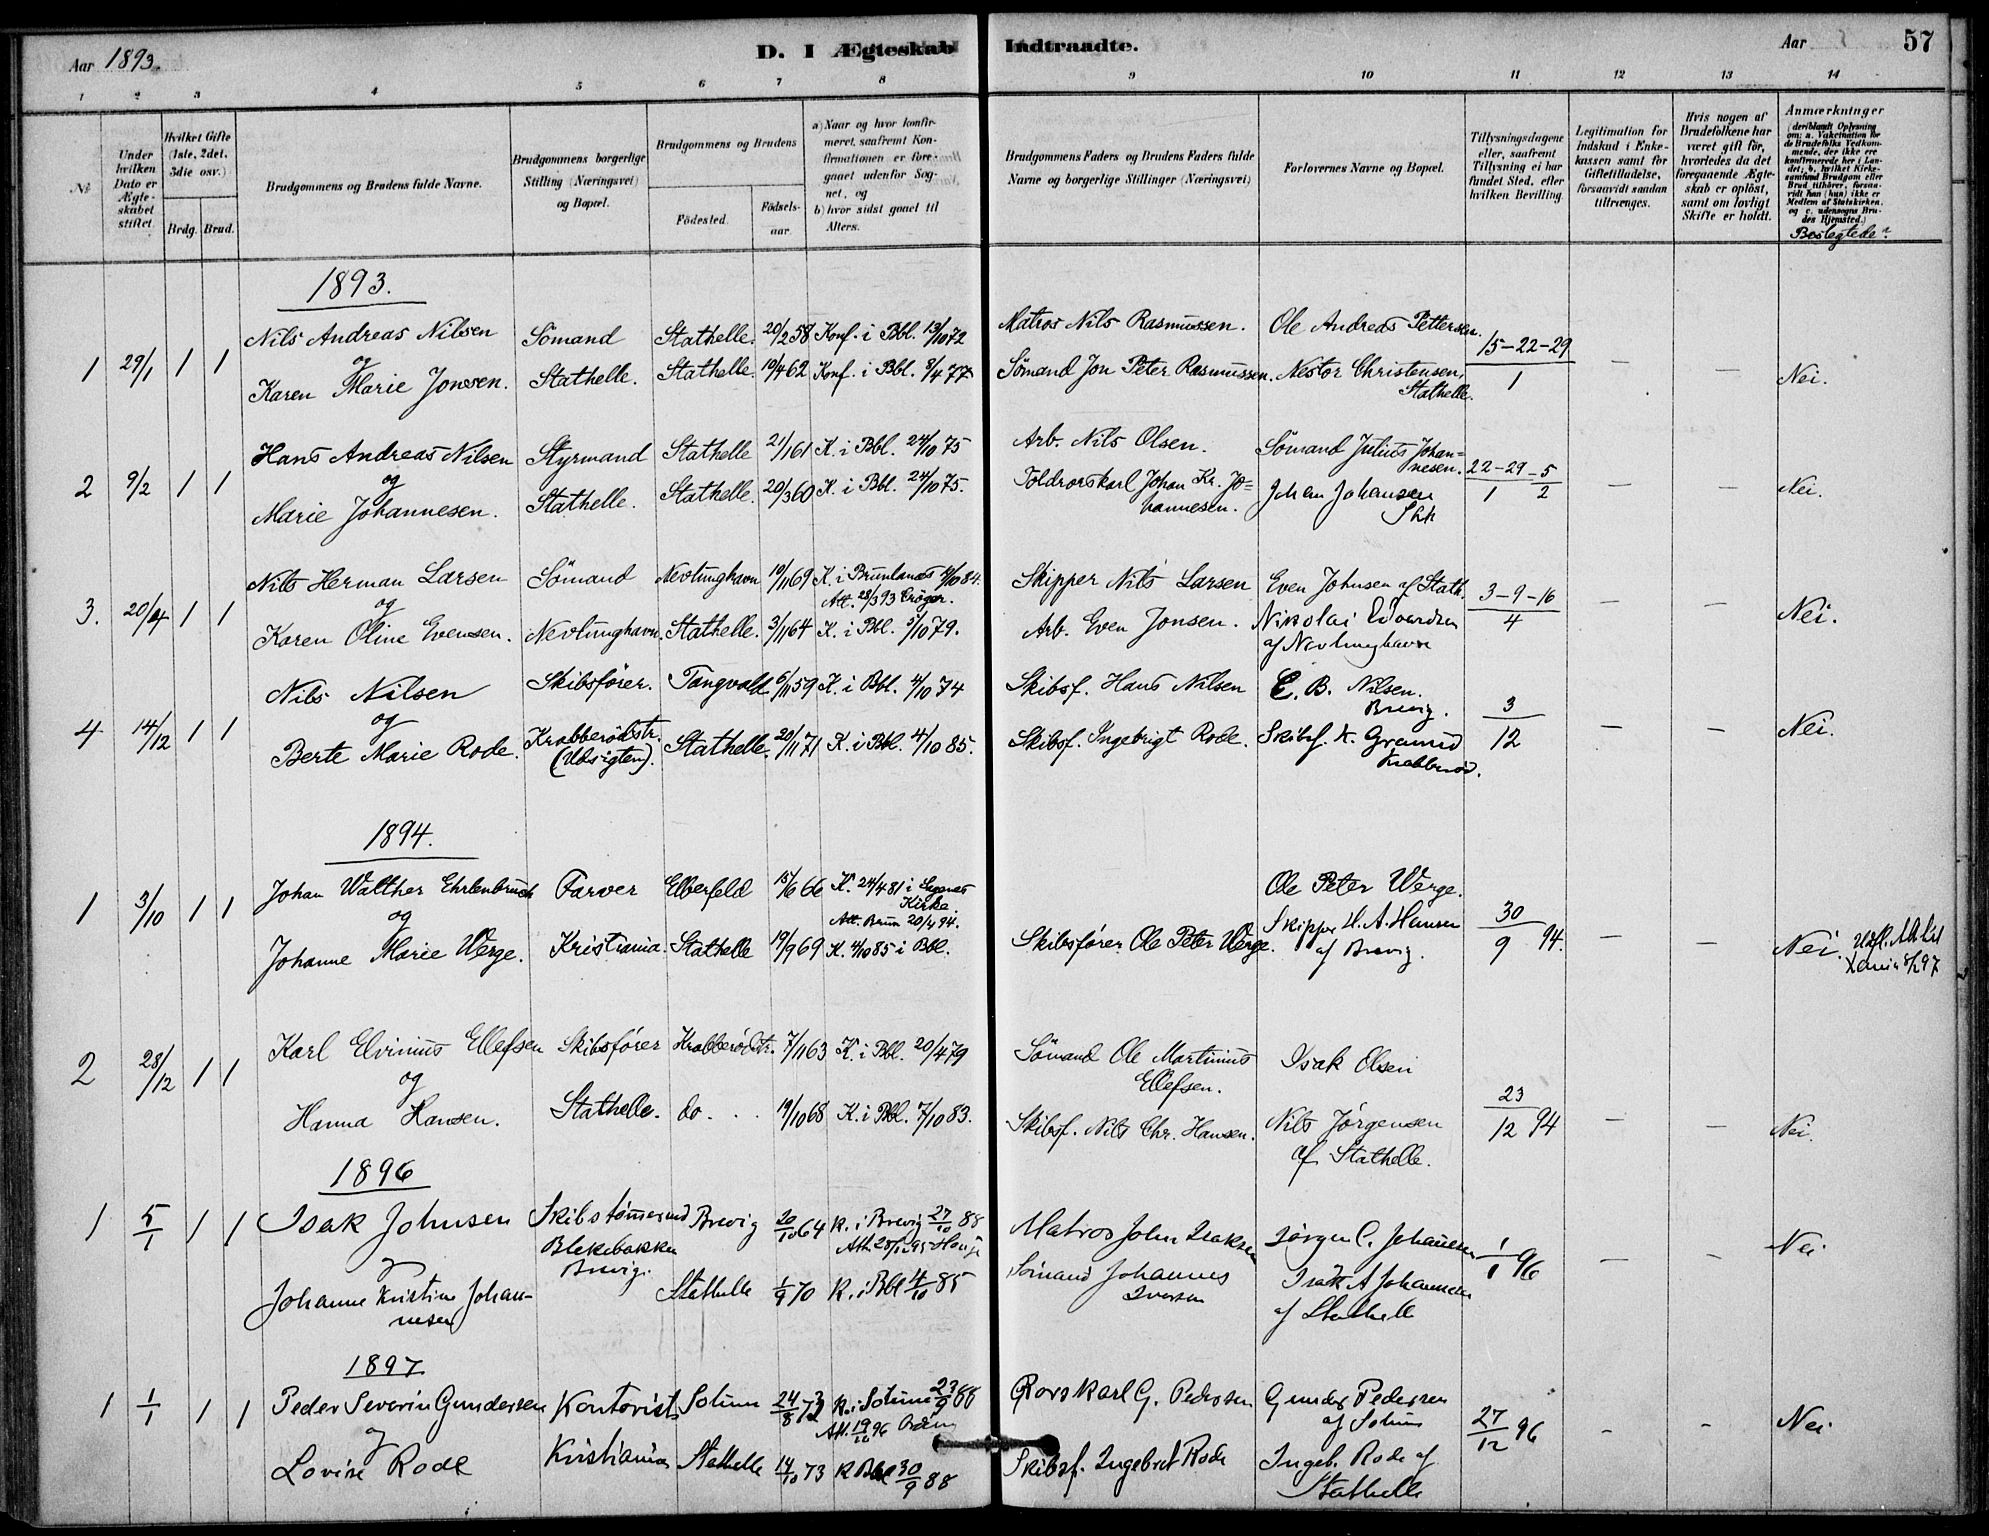 Aar 1893.
D. I Ægteskab Indtraadte.
Aar
57
1 2 3 4 5 6 7 8 9 10 11 12 13 14
No
Under hvilken Dato er Ægteskabet stiftet.
Hvilket Gifte (1ste, 2det, 3die osv.)
Brdg. Brud.
Brudgommens og Brudens fulde Navne.
Brudgommens borgerlige Stilling (Næringsvei) og Bopæl.
Brudgommens og Brudens
Födested.
Födsels-aar.
a) Naar og hvor konfirmeret, saafremt Konfirmationen er foregaaet udenfor Sognet, og
b) hvor sidst gaaet til Alters.
Brudgommens Faders og Brudens Faders fulde Navne og borgerlige Stillinger (Næringsvei)
Forlovernes Navne og Bopæl.
Tillysningsdagene eller, saafremt Tillysning ei har fundet Sted, efter hvilken Bevilling.
Legitimation for Indskud i Enkekassen samt for Giftetilladelse, forsaavidt saadan tiltrænges.
Hvis nogen af Brudefolkene har været gift för, hvorledes da det foregaaende Ægteskab er oplöst, samt om lovligt Skifte er holdt.
Anmærkninger (deriblandt Oplysning om: a. Vakcination for de Brudefolks Vedkommende, der ikke ere konfirmerede her i Landet; b. hvilket Kirkesamfund Brudgom eller Brud tilhörer, forsaavidt han (hun) ikke er Medlem af Statskirken, og c. udensogns Brudes Hjemsted.)
Beslegtede?
1893.
Nils Andreas Nilsen Sömand Stathelle. 20/2 58 Konf. i Bbl. 13/10 72 Matros Nils Rasmussen. Ole Andreas Pettersen.
1 29/1 1 1 og 15-22-29/1 – – Nei.
Karen Marie Jonsen. Stathelle. Stathelle. 19/4 62 Konf. i Bbl. 8/4 77 Sömand Jon Peter Rasmussen. Nestor Christensen, Stathelle.
Hans Andreas Nilsen Styrmand Stathelle 21/1 61 K. i Bbl. 24/10 75 Arb. Nils Olsen. Sömand Julius Johannesen.
2 9/2 1 1 og 22-29/1 - 5/2 – – Nei.
Marie Johannesen. Stathelle. Stathelle. 20/3 60 K. i Bbl. 24/10 75. Toldrorskarl Johan Kr. Johannesen. Johan Johansen Sth
Nils Herman Larsen Sömand Nevlunghavn 10/11 69 K. i Brunlanæs 12/10 84. Skipper Nils Larsen Even Johnsen af Stath.
Att. 28/3 93 Crøger.
3. 20/4 1 1 og 3-9-16/4 – – Nei.
Karen Oline Evensen. Nevlunghavn. Stathelle. 3/11 64 K. i Bbl. 5/10 79. Arb. Even Jonsen. Nikolai Edvardsen af Nevlunghavn
Nils Nilsen Skibsfører. Tangvald. 6/11 59 K. i Bbl. 4/10 74 Skibsf. Hans Nilsen E. B. Nilsen. Brevig.
4 14/12 1 1 og 3/12 – – Nei.
Berte Marie Rode. Krabberødstr. (Udsigten). Stathelle. 20/11 71 K. i Bbl. 4/10 85. Skibsf. Ingebrigt Rode. Skibsf. K. Krabberød.
1894.
Johan Walther Ehrlenbruch Farver Elberfeld 15/6 66 K. 24/4 81 i Kirke. Ole Peter Werge.
Att. Bruun 20/4 94.
1 3/10 1 1 og 30/9 94. – – Nei.
Johanne Marie Werge. Kristiania. Stathelle 19/9 69 K. 4/10 85 i Bbl. Skibsfører Ole Peter Werge. Skipper H. A. Hansen af Brevig.
Karl Elvinius Ellefsen Skibsfører Krabberødstr. 7/11 63 K. i Bbl. 20/4 79 Sömand Ole Martinius Ellefsen. Isak Olsen
2 28/12 1 1 og 23/12 94 – – Nei.
Hanna Hansen. Stathelle. do. 19/10 68 K. i Bbl. 7/10 83. Skibsf. Nils Chr. Hansen. Nils Jørgensen af Stathelle.
1896
1 5/1 1 1 Isak Johnsen Skibstømmermd Brevig 20/10 64 K. i Brevig 27/10 88 Matros John Isaksen Jørgen C. Johansen 1/1 96 – – Nei
og Blekebakken Brevig.
Johanne Kristine Johannesen Stathelle 1/9 70 K. i Bbl 4/10 85 Sömand Johannes Iversen Isak A Johannesen af Stathelle
1897
1 1/1 1 1 Peder Severin Gundersen Kontorist Solum 24/8 73 K. i Solum 23/9 88 Rorskarl G. Pedersen Gunder Pedersen af Solum 27/12 96 - - Nei
og
Lovise Rode Kristiania Stathelle 14/10 73 K Bbl 30/9 88 Skibsf. Ingebret Rode Ingeb. Rode af Stathelle